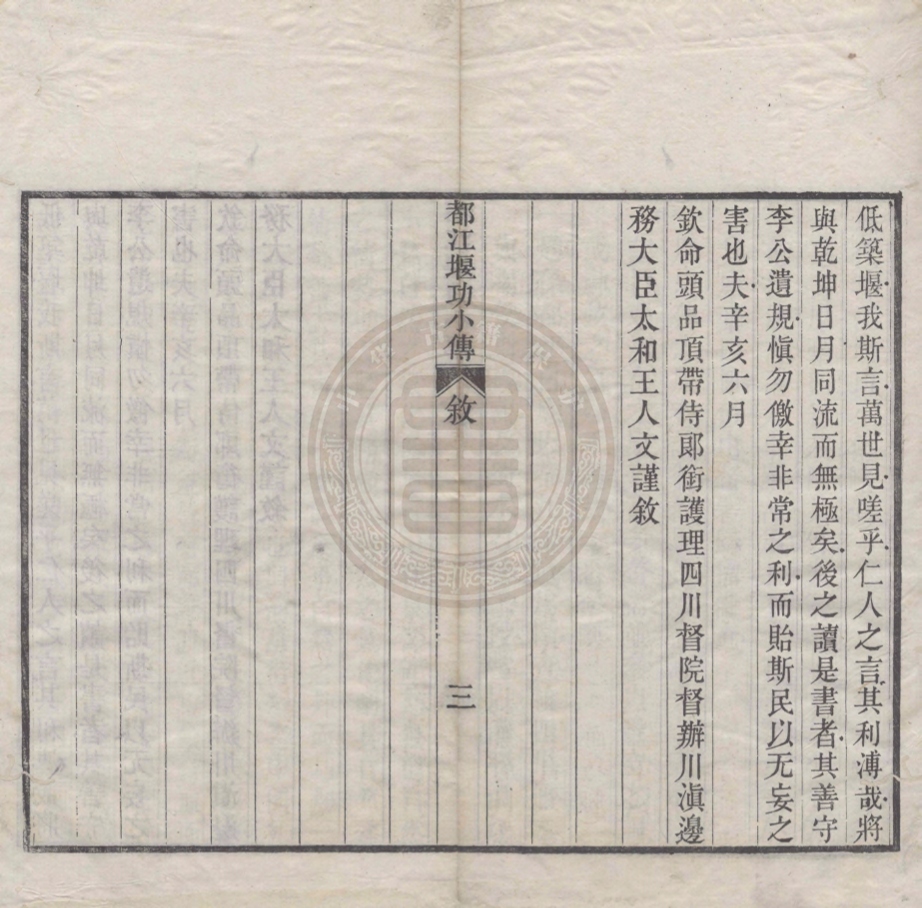 低築堰我斯言萬世見嗟乎仁人之言其利溥哉將
與乾坤日月同流而無極矣後之讀是書者其善守
李公遺規愼勿儌幸非常之利而貽斯民以无妄之
害也夫辛亥六月
欽命頭品頂帶侍郞銜護理四川督院督辦川滇邊
務大臣太和王人文謹敘
都江堰功小傳 敘 三